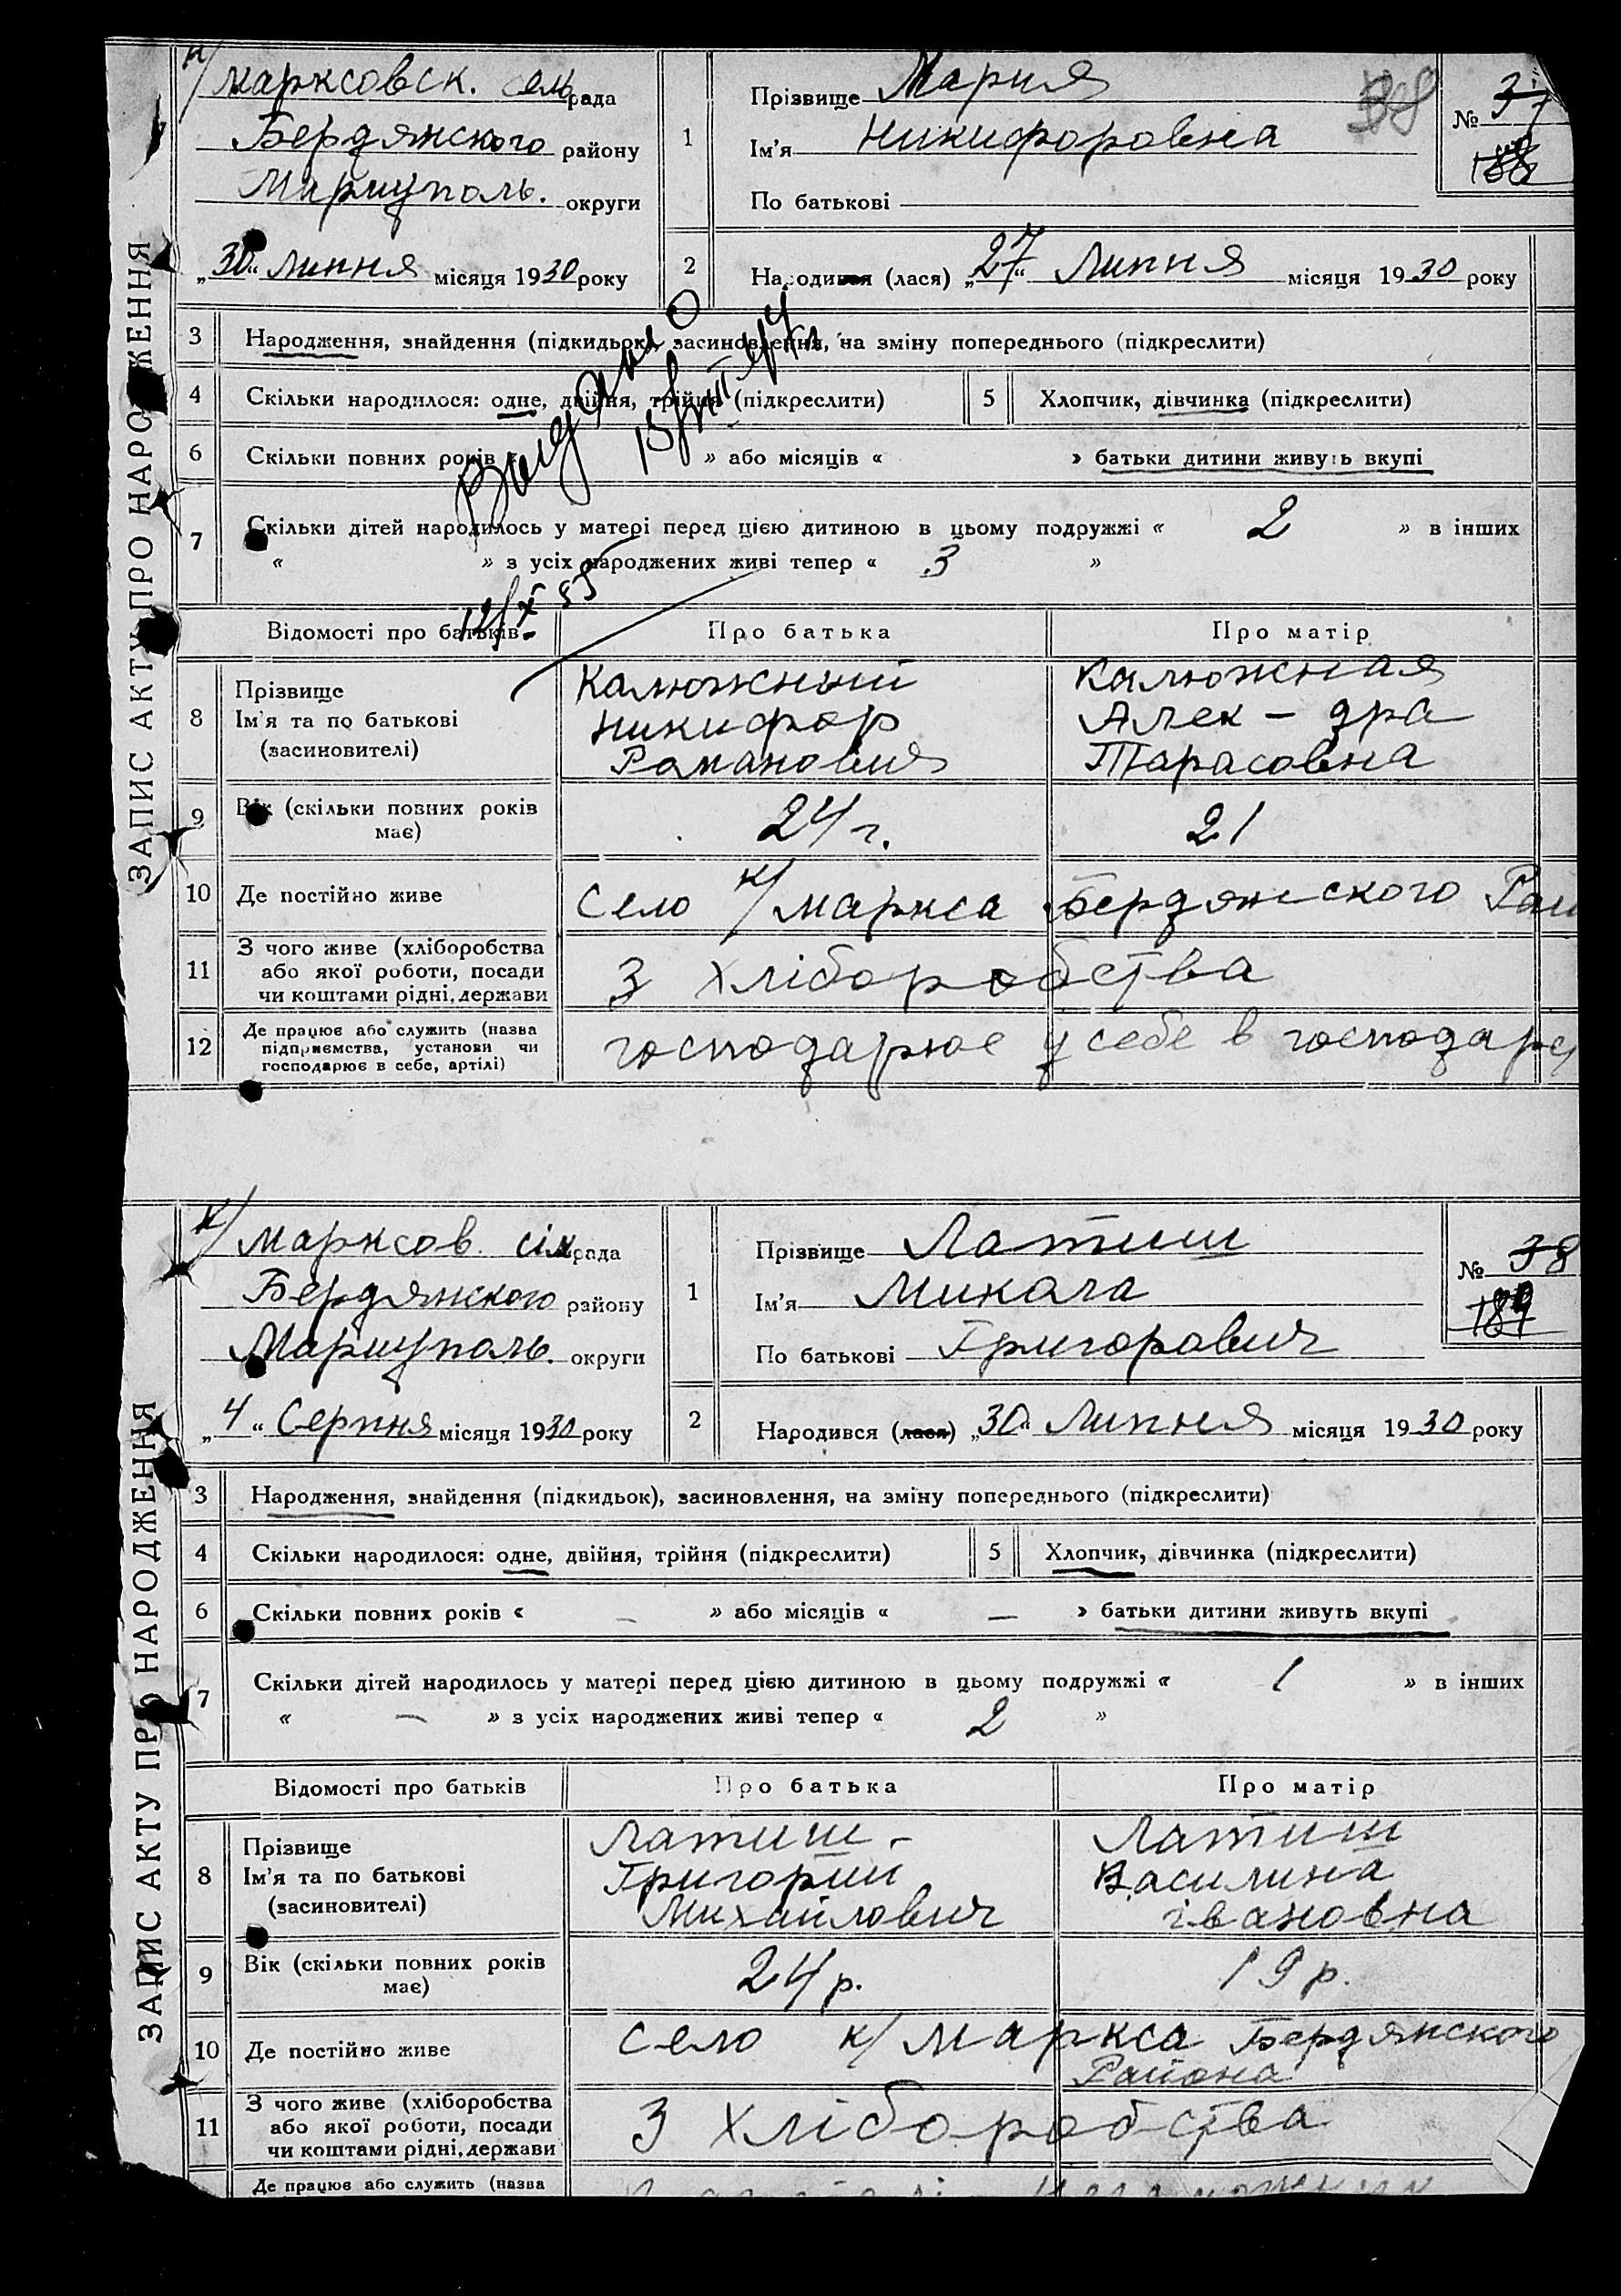 ЗАПИС АКТУ ПРО НАРОДЖЕННЯ
К/Марксовск. сельрада
Бердянского району
Мариуполь. округи
„30“ Липня місяця 1930 року
1
Прізвище Мария
Ім'я Никифоровна
По батькові
38
№ 37
188
2
Народився (лася) „27“ Липня місяця 1930 року
3 Народження, знайдення (підкидьок), засиновлення, на зміну попереднього (підкреслити)
4 Скільки народилося: одне, двійня, трійня (підкреслити) 5 Хлопчик, дівчинка (підкреслити)
6 Скільки повних років « » або місяців « » батьки дитини живуть вкупі
7 Скільки дітей народилось у матері перед цією дитиною в цьому подружжі « 2 » в інших
« » з усіх народжених живі тепер « 3 »
12/X 55
Відомості про батьків Про батька Про матір
8 Прізвище Калюжный Калюжная
Ім'я та по батькові Никифор Алек-дра
(засиновителі) Романович Тарасовна
9 Вік (скільки повних років має) 24 г. 21
10 Де постійно живе Село к/маркса Бердянского
11 З чого живе (хліборобства або якої роботи, посади чи коштами рідні, держави З хліборобства
12 Де працює або служить (назва підприємства, установи чи господарює в себе, артілі) господарює у себе в господарс
ЗАПИС АКТУ ПРО НАРОДЖЕННЯ
К/Марксов. сілрада
Бердянского району
Мариуполь. округи
„4“ Серпня місяця 1930 року
1
Прізвище Латиш
Ім'я Микола
По батькові Григорович
№ 38
189
2
Народився (лася) „30“ Липня місяця 1930 року
3 Народження, знайдення (підкидьок), засиновлення, на зміну попереднього (підкреслити)
4 Скільки народилося: одне, двійня, трійня (підкреслити) 5 Хлопчик, дівчинка (підкреслити)
6 Скільки повних років « — » або місяців « — » батьки дитини живуть вкупі
7 Скільки дітей народилось у матері перед цією дитиною в цьому подружжі « 1 » в інших
« — » з усіх народжених живі тепер « 2 »
Відомості про батьків Про батька Про матір
8 Прізвище Латиш - Латиш
Ім'я та по батькові Григорий Василина
(засиновителі) Михайлович івановна
9 Вік (скільки повних років має) 24 р. 19 р.
10 Де постійно живе Село к/маркса Бердянского
Района
11 З чого живе (хліборобства або якої роботи, посади чи коштами рідні, держави З хліборобства
Де працює або служить (назва